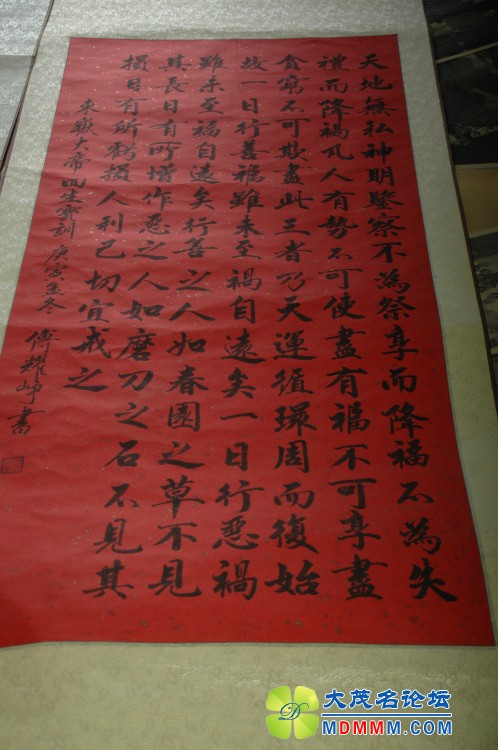 天地無私神明鑒察不為祭享而降福不為失
禮而降禍凡人有勢不可使盡有福不可享盡
貧窮不可欺盡此三者乃天運循環周而復始
故一日行善福雖未至禍自遠矣一日行惡禍
雖未至福自遠矣行善之人如春園之草不見
其長日有所增作惡之人如磨刀之石不見其
損日有所虧損人利己切宜戒之
東嶽大帝回生寶訓 庚寅冬 傅耀崢書
大茂名论坛
MDMMM.COM